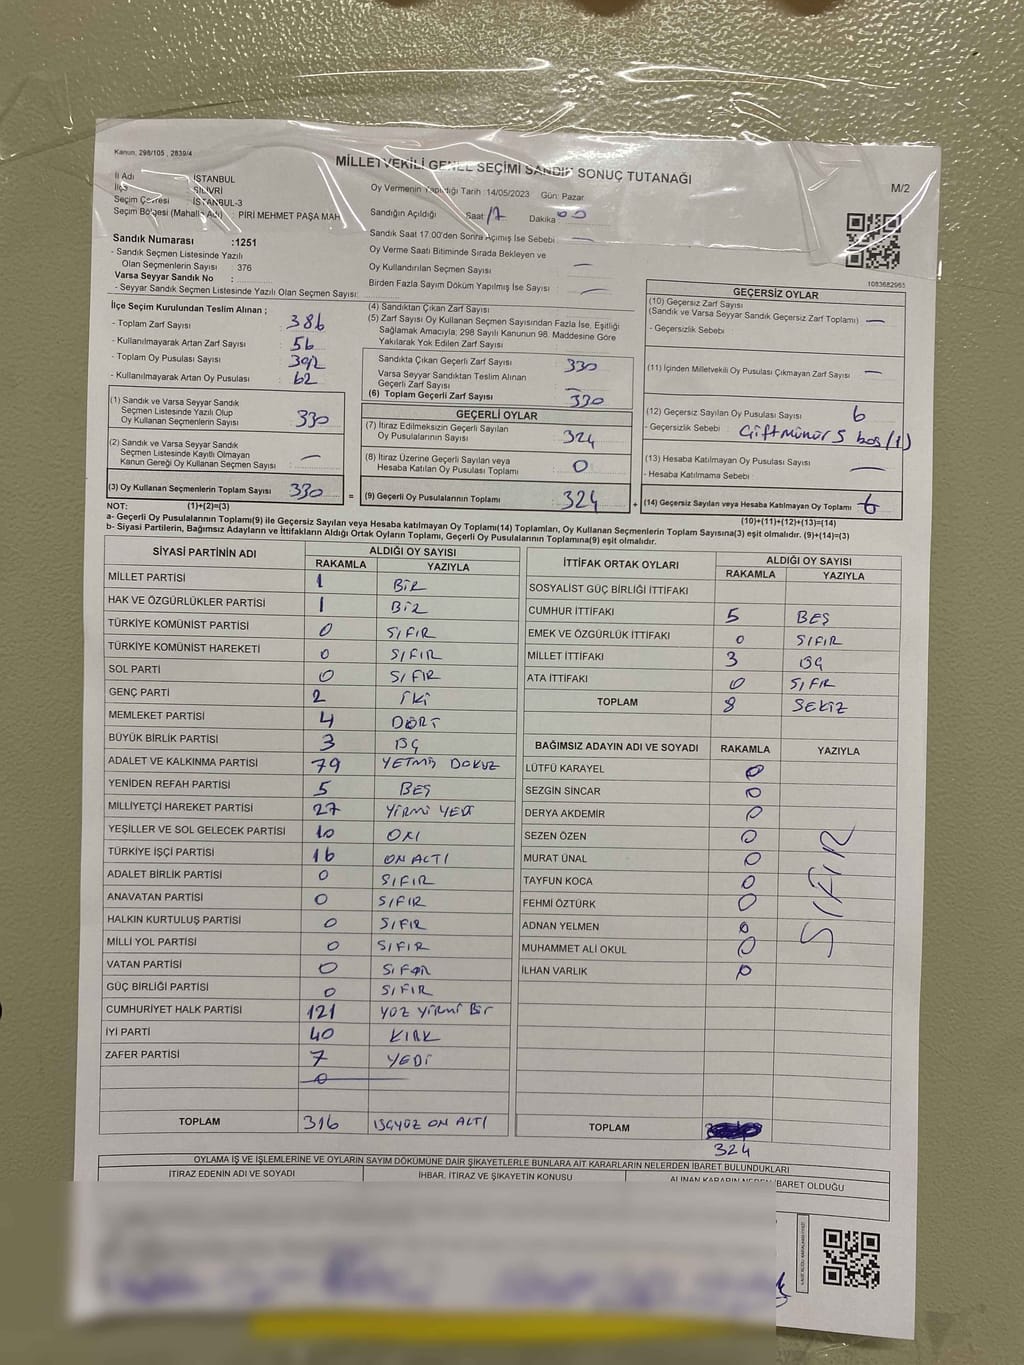 Kanun, 298/105 , 2839/4
MİLLETVEKİLİ GENEL SEÇİMİ SANDIK SONUÇ TUTANAĞI
M/2
İl Adı : İSTANBUL
İlçe : SİLİVRİ
Seçim Çevresi : İSTANBUL-3
Seçim Bölgesi (Mahalle Adı) : PİRİ MEHMET PAŞA MAH
Oy Vermenin Yapıldığı Tarih : 14/05/2023 Gün: Pazar
Sandığın Açıldığı Saat 17 Dakika 00
Sandık Saat 17:00'den Sonra Açımış İse Sebebi —
Oy Verme Saati Bitiminde Sırada Bekleyen ve
Oy Kullandırılan Seçmen Sayısı —
Birden Fazla Sayım Döküm Yapılmış İse Sayısı —
Sandık Numarası :1251
- Sandık Seçmen Listesinde Yazılı
Olan Seçmenlerin Sayısı : 376
Varsa Seyyar Sandık No :
- Seyyar Sandık Seçmen Listesinde Yazılı Olan Seçmen Sayısı:
1083682965
İlçe Seçim Kurulundan Teslim Alınan ;
- Toplam Zarf Sayısı 386
- Kullanılmayarak Artan Zarf Sayısı 56
- Toplam Oy Pusulası Sayısı 392
- Kullanılmayarak Artan Oy Pusulası 62
(1) Sandık ve Varsa Seyyar Sandık
Seçmen Listesinde Yazılı Olup
Oy Kullanan Seçmenlerin Sayısı 330
(2) Sandık ve Varsa Seyyar Sandık
Seçmen Listesinde Kayıtlı Olmayan
Kanun Gereği Oy Kullanan Seçmen Sayısı —
(3) Oy Kullanan Seçmenlerin Toplam Sayısı 330 =
(1)+(2)=(3)
(4) Sandıktan Çıkan Zarf Sayısı
(5) Zarf Sayısı Oy Kullanan Seçmen Sayısından Fazla İse, Eşitliği
Sağlamak Amacıyla; 298 Sayılı Kanunun 98. Maddesine Göre
Yakılarak Yok Edilen Zarf Sayısı
Sandıkta Çıkan Geçerli Zarf Sayısı 330
Varsa Seyyar Sandıktan Teslim Alınan
Geçerli Zarf Sayısı —
(6) Toplam Geçerli Zarf Sayısı 330
GEÇERLİ OYLAR
(7) İtiraz Edilmeksizin Geçerli Sayılan
Oy Pusulalarının Sayısı 324
(8) İtiraz Üzerine Geçerli Sayılan veya
Hesaba Katılan Oy Pusulası Toplamı 0
(9) Geçerli Oy Pusulalarının Toplamı 324 +
GEÇERSİZ OYLAR
(10) Geçersiz Zarf Sayısı
(Sandık ve Varsa Seyyar Sandık Geçersiz Zarf Toplamı) —
- Geçersizlik Sebebi
(11) İçinden Milletvekili Oy Pusulası Çıkmayan Zarf Sayısı —
(12) Geçersiz Sayılan Oy Pusulası Sayısı 6
- Geçersizlik Sebebi Çift mühür 5 boş (1)
(13) Hesaba Katılmayan Oy Pusulası Sayısı —
- Hesaba Katılmama Sebebi
(14) Geçersiz Sayılan veya Hesaba Katılmayan Oy Toplamı 6
(10)+(11)+(12)+(13)=(14)
NOT:
a- Geçerli Oy Pusulalarının Toplamı(9) ile Geçersiz Sayılan veya Hesaba katılmayan Oy Toplamı(14) Toplamları, Oy Kullanan Seçmenlerin Toplam Sayısına(3) eşit olmalıdır. (9)+(14)=(3)
b- Siyasi Partilerin, Bağımsız Adayların ve İttifakların Aldığı Ortak Oyların Toplamı, Geçerli Oy Pusulalarının Toplamına(9) eşit olmalıdır.
SİYASİ PARTİNİN ADI ALDIĞI OY SAYISI
RAKAMLA YAZIYLA
MİLLET PARTİSİ 1 BİR
HAK VE ÖZGÜRLÜKLER PARTİSİ 1 BİR
TÜRKİYE KOMÜNİST PARTİSİ 0 SIFIR
TÜRKİYE KOMÜNİST HAREKETİ 0 SIFIR
SOL PARTİ 0 SIFIR
GENÇ PARTİ 2 İKİ
MEMLEKET PARTİSİ 4 DÖRT
BÜYÜK BİRLİK PARTİSİ 3 ÜÇ
ADALET VE KALKINMA PARTİSİ 79 YETMİŞ DOKUZ
YENİDEN REFAH PARTİSİ 5 BEŞ
MİLLİYETÇİ HAREKET PARTİSİ 27 YİRMİ YEDİ
YEŞİLLER VE SOL GELECEK PARTİSİ 10 ON
TÜRKİYE İŞÇİ PARTİSİ 16 ON ALTI
ADALET BİRLİK PARTİSİ 0 SIFIR
ANAVATAN PARTİSİ 0 SIFIR
HALKIN KURTULUŞ PARTİSİ 0 SIFIR
MİLLİ YOL PARTİSİ 0 SIFIR
VATAN PARTİSİ 0 SIFIR
GÜÇ BİRLİĞİ PARTİSİ 0 SIFIR
CUMHURİYET HALK PARTİSİ 121 YÜZ YİRMİ BİR
İYİ PARTİ 40 KIRK
ZAFER PARTİSİ 7 YEDİ
0
TOPLAM 316 ÜÇYÜZ ON ALTI
İTTİFAK ORTAK OYLARI ALDIĞI OY SAYISI
RAKAMLA YAZIYLA
SOSYALİST GÜÇ BİRLİĞİ İTTİFAKI
CUMHUR İTTİFAKI 5 BEŞ
EMEK VE ÖZGÜRLÜK İTTİFAKI 0 SIFIR
MİLLET İTTİFAKI 3 ÜÇ
ATA İTTİFAKI 0 SIFIR
TOPLAM 8 SEKİZ
BAĞIMSIZ ADAYIN ADI VE SOYADI RAKAMLA YAZIYLA
LÜTFÜ KARAYEL 0
SEZGİN SİNCAR 0
DERYA AKDEMİR 0
SEZEN ÖZEN 0
MURAT ÜNAL 0
TAYFUN KOCA 0
FEHMİ ÖZTÜRK 0
ADNAN YELMEN 0
MUHAMMET ALİ OKUL 0
İLHAN VARLIK 0
SIFIR
TOPLAM
324
OYLAMA İŞ VE İŞLEMLERİNE VE OYLARIN SAYIM DÖKÜMÜNE DAİR ŞİKAYETLERLE BUNLARA AİT KARARLARIN NELERDEN İBARET BULUNDUKLARI
İTİRAZ EDENİN ADI VE SOYADI İHBAR, İTİRAZ VE ŞİKAYETİN KONUSU ALINAN KARARIN NEDEN İBARET OLDUĞU